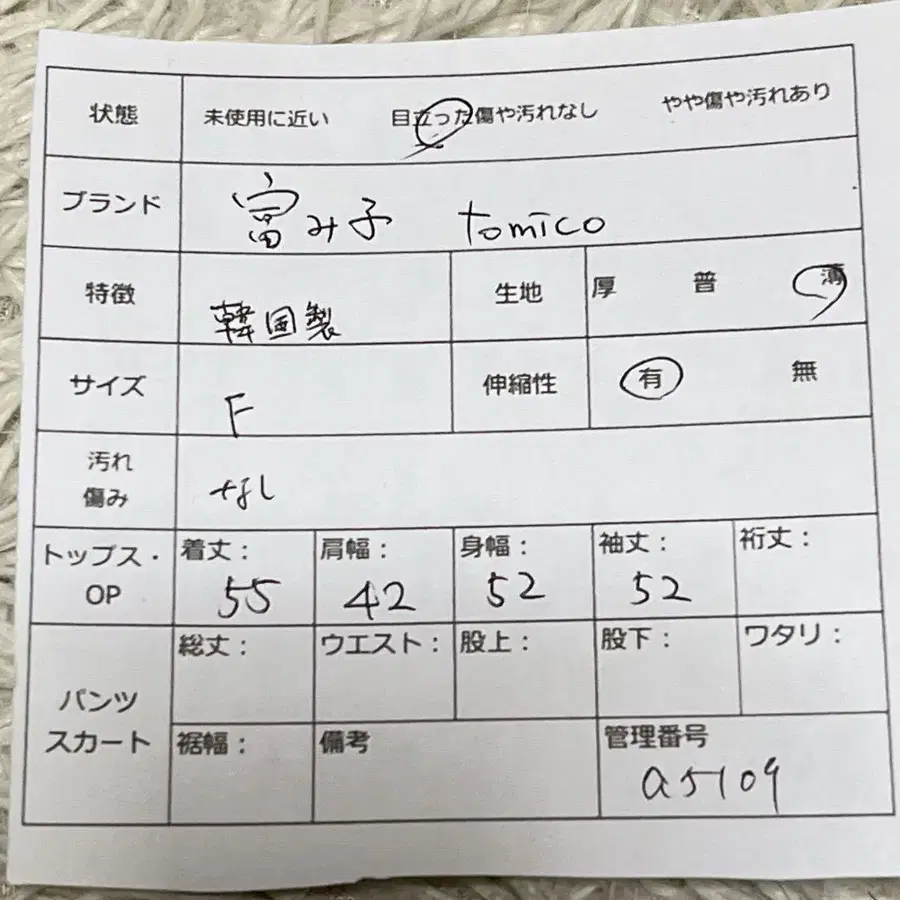 状態 未使用に近い 目立った傷や汚れなし やや傷や汚れあり
ブランド 富み子 tomico
特徴 韓国製 生地 厚 普 薄
サイズ F 伸縮性 有 無
汚れ
傷み なし
トップス・
OP
着丈： 肩幅： 身幅： 袖丈： 裄丈：
55 42 52 52
パンツ
スカート
総丈： ウエスト： 股上： 股下： ワタリ：
裾幅： 備考 管理番号
a5109